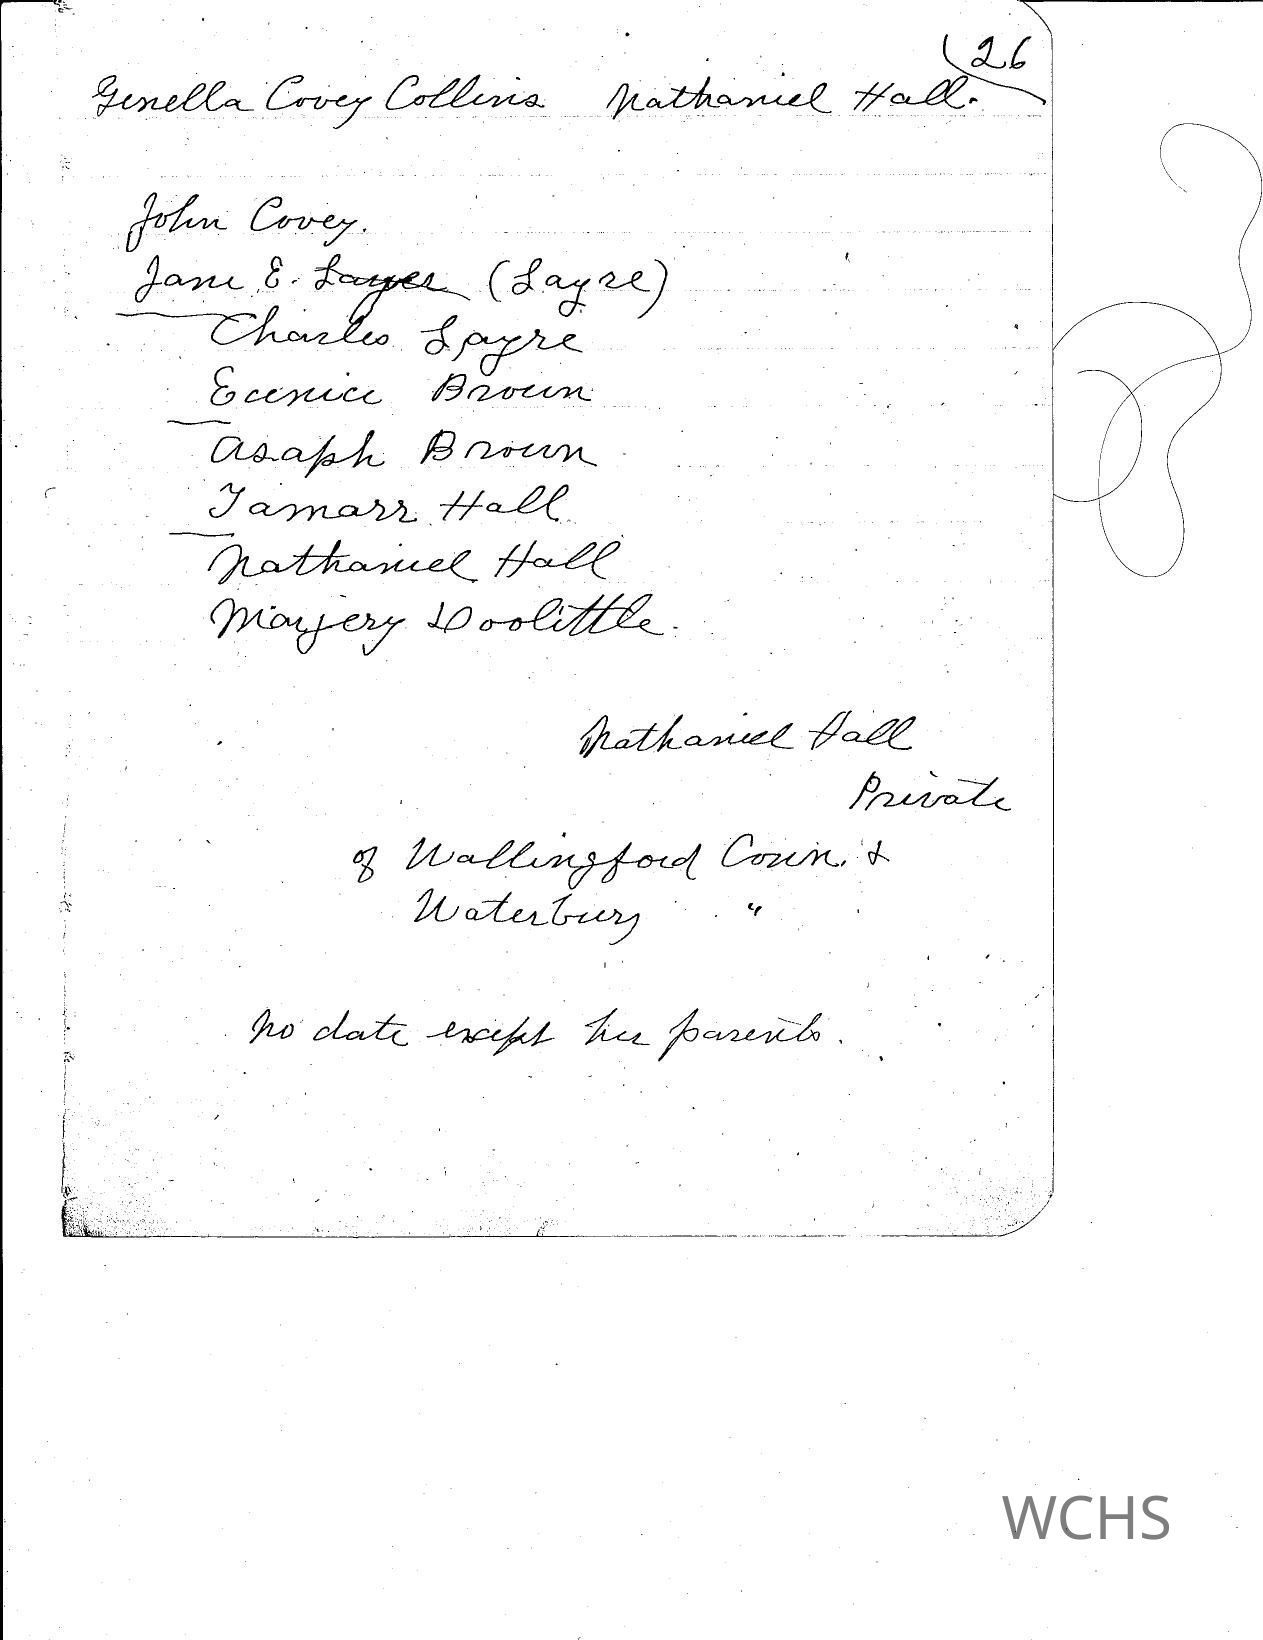 26
Genella Covey Collins Nathaniel Hall.
John Covey.
Jane E. Sayer (Sayre)
Charles Sayre
Eunice Brown
Asaph Brown
Tamarr Hall
Nathaniel Hall
Marjery Doolittle.
Nathaniel Hall
Private
of Wallingford Conn. &
Waterbury "
No date except her parents.
WCHS